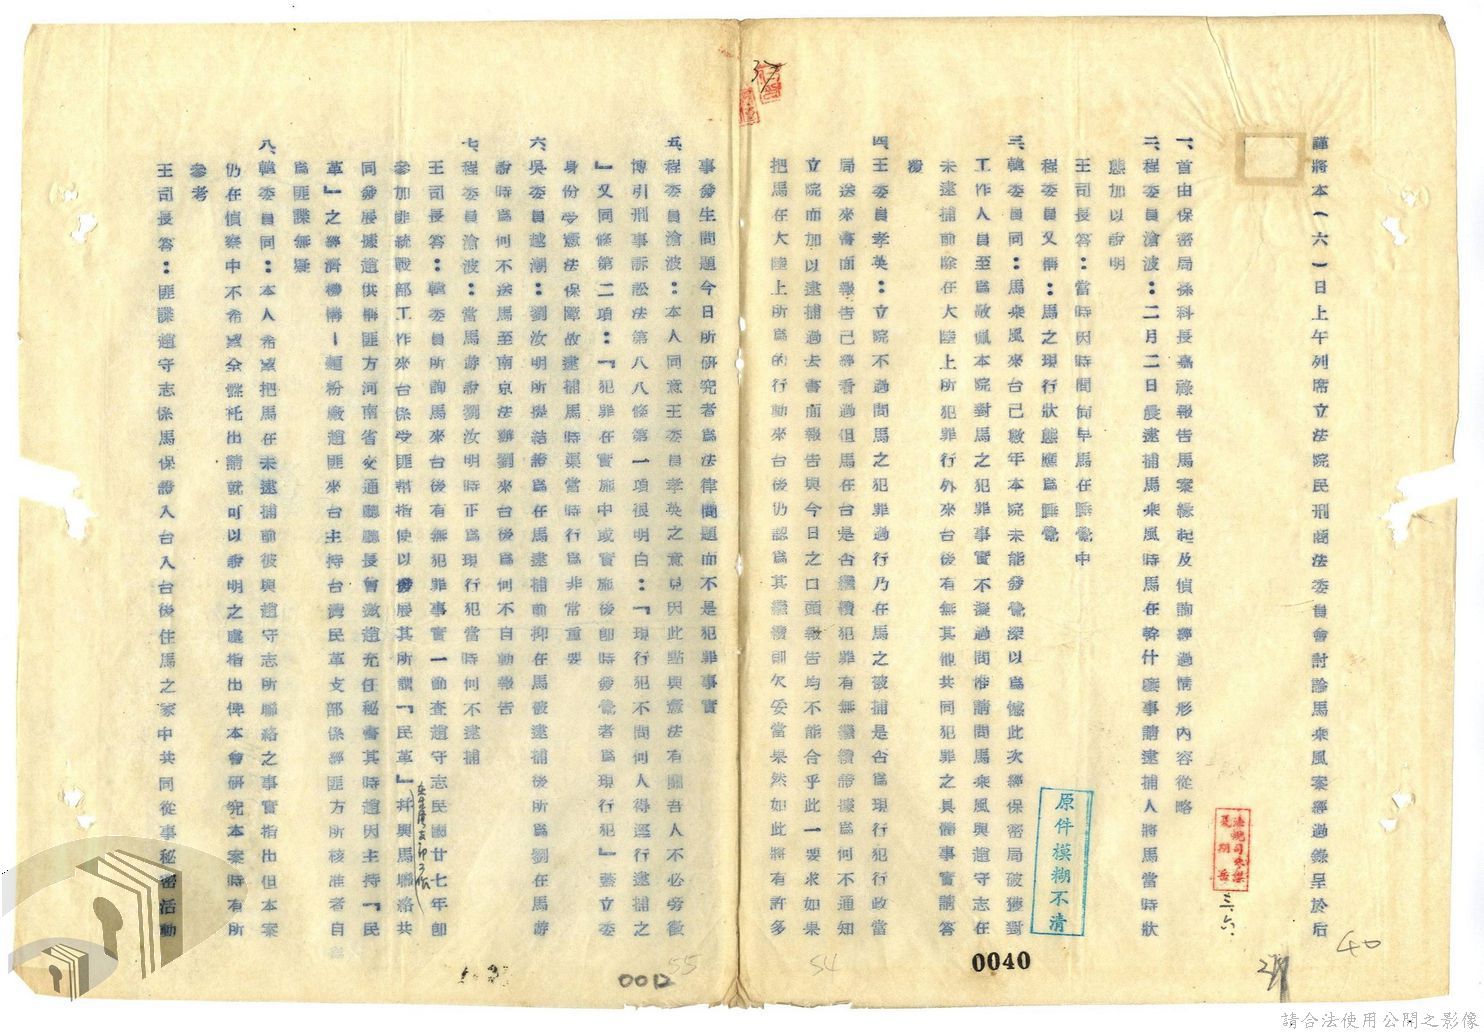 謹將本（六）日上午列席立法院民刑商法委員會討論馬乘風案經過錄呈於后
一、首由保密局孫科長嘉祿報告馬案緣起及偵詢經過情形內容從略
二、程委員滄波：二月二日晨逮捕馬乘風時馬在幹什麼事請逮捕人將馬當時狀
態加以說明
王司長答：當時因時間尚早馬在睡覺中
程委員又稱：馬之現行狀態應為睡覺
三、韓委員同：馬乘風來台已數年本院未能發覺深以為憾此次經保密局破獲對
工作人員至為敬佩本院對馬之犯罪事實不擬過問惟請問馬乘風與趙守志在
未逮捕前除在大陸上所犯罪行外來台後有無其他共同犯罪之具體事實請答
覆
四、王委員孝英：立院不過問馬之犯罪過行乃在馬之被捕是否為現行犯行政當
局送來書面報告已經看過但馬在台是否繼續犯罪有無繼續證據為何不通知
立院而加以逮捕過去書面報告與今日之口頭報告均不能合乎此一要求如果
把馬在大陸上所為的行動來台後仍認為其繼續則欠妥當果然如此將有許多
事發生問題今日所研究者為法律問題而不是犯罪事實
五、程委員滄波：本人同意王委員孝英之意見因此點與憲法有關吾人不必旁徵
博引刑事訴訟法第八八條第一項很明白：『現行犯不問何人得逕行逮捕之
』又同條第二項：『犯罪在實施中或實施後即時發覺者為現行犯』蓋立委
身份受憲法保障故逮捕馬時渠當時行為非常重要
六、吳委員越潮：劉汝明所提結證為在馬逮捕前抑在馬被逮捕後所為劉在馬游
說時為何不送馬至南京法辦劉來台後為何不自動報告
七、程委員滄波：當馬游說劉汝明時正為現行犯當時何不逮捕
王司長答：韓委員所詢馬來台後有無犯罪事實一節查趙守志民國廿七年即
參加匪統戰部工作來台係受匪幫指使以發展其所謂『民革』并與馬聯絡共
同發展據趙供稱匪方河南省交通廳廳長曾邀趙充任秘書其時趙因主持『民
革』之經濟機構－麵粉廠趙匪來台主持台灣民革支部係經匪方所核准者自
為匪諜無疑
八、韓委員同：本人希望把馬在未逮捕前彼與趙守志所聯絡之事實指出但本案
仍在偵察中不希望全盤托出請就可以說明之處指出俾本會研究本案時有所
參考
王司長答：匪諜趙守志係馬保證入台入台後住馬之家中共同從事秘密活動
原件模糊不清
三、六
0040
40
54
55
0012
37
請合法使用公開之影像